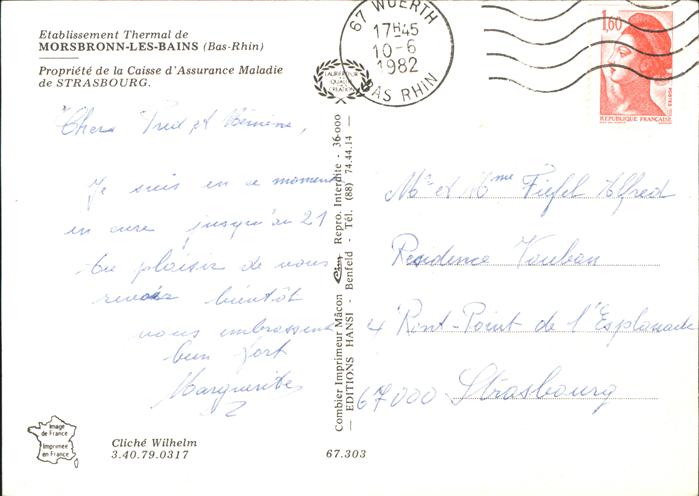 Etablissement Thermal de
MORSBRONN-LES-BAINS (Bas-Rhin)
Propriété de la Caisse d'Assurance Maladie
de STRASBOURG.
67 WOERTH
17H45
10-6
1982
BAS RHIN
LAUREAT DU
QUALITÉ
CREATION
1,60
POSTES
REPUBLIQUE FRANÇAISE
Chers Fred et
Je suis en ce moment
en cure jusqu'au 21
Au plaisir de vous
revoir bientôt
vous embrassent
bien fort
Marguerite
Combier Imprimeur Mâcon Repro. Interdite - 36-000
— EDITIONS HANSI - Benfeld - Tél. (88) 74.44.14 —
Mr et Mme Fiefel Alfred
Residence Vauban
4 Rint-Point de l'Esplanade
67000 Strasbourg
Image
de France
Imprimée
en France
Cliché Wilhelm
3.40.79.0317
67.303